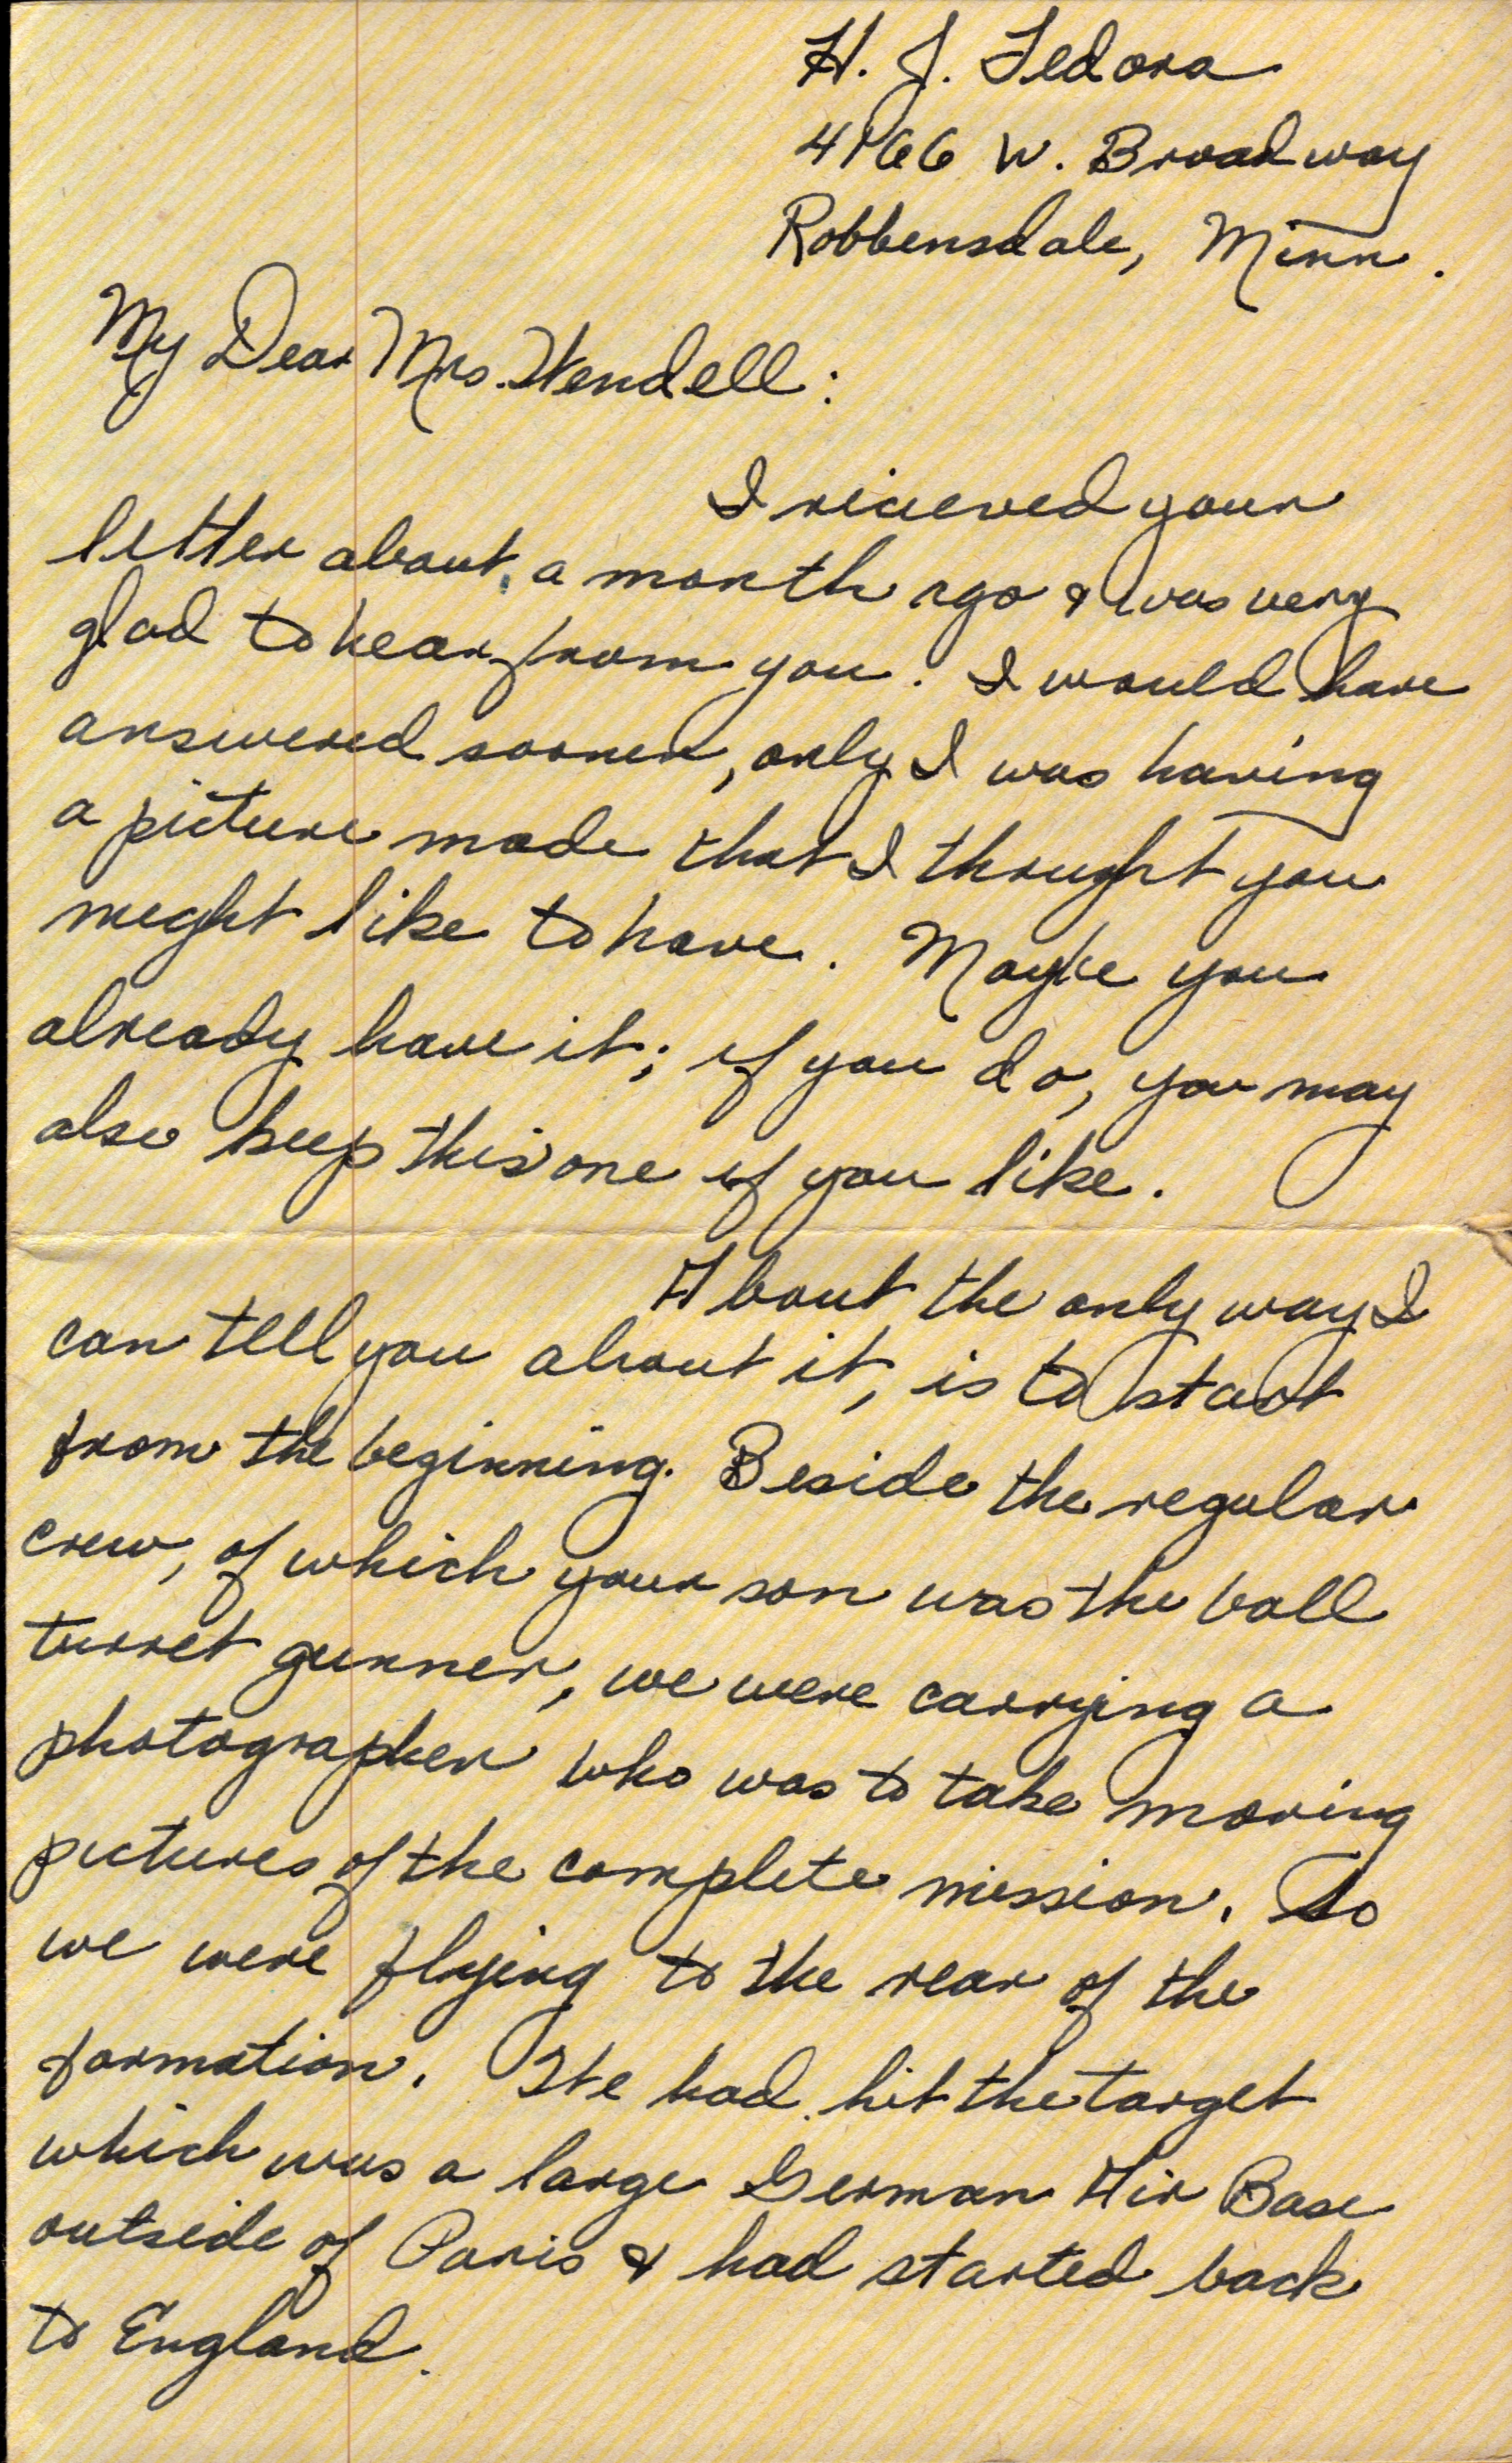 H. J. Fedora
4166 W. Broadway
Robbensdale, Minn.
My Dear Mrs. Wendell:
I recieved your
letter about a month ago & was very
glad to hear from you. I would have
answered sooner, only I was having
a picture made that I thought you
might like to have. Maybe you
already have it; if you do, you may
also keep this one if you like.
About the only way I
can tell you about it, is to start
from the beginning. Beside the regular
crew, of which your son was the ball
turret gunner, we were carrying a
photographer who was to take moving
pictures of the complete mission. So
we were flying to the rear of the
formation. We had hit the target
which was a large German Air Base
outside of Paris & had started back
to England.